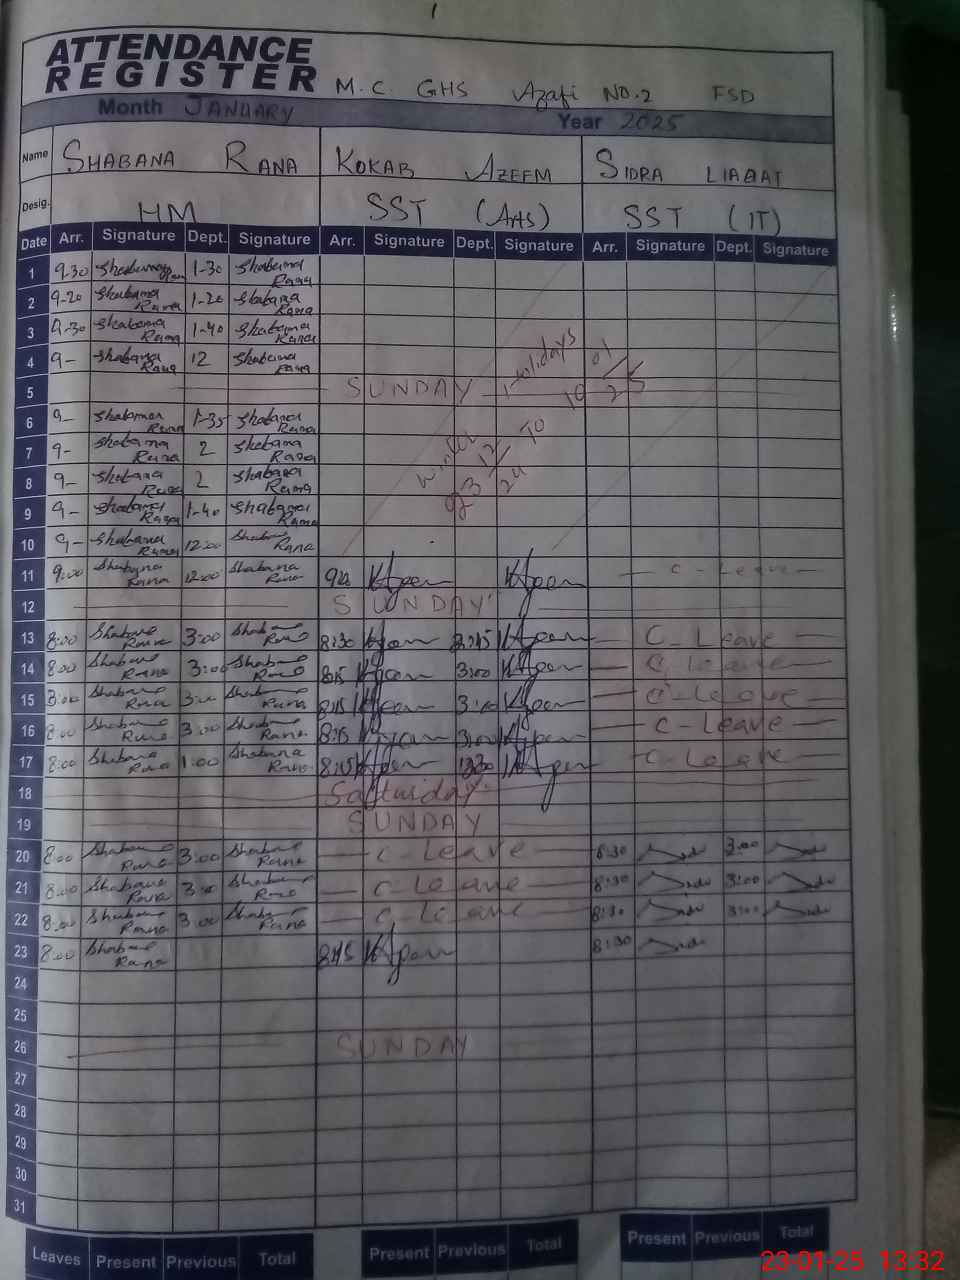 1
ATTENDANCE
REGISTER M.C. GHS NO.2 FSD
Month JANUARY Year 2025
Name SHABANA RANA KOKAB AZEEM SIDRA LIAQAT
Desig. HM SST (Arts) SST (IT)
Date Arr. Signature Dept. Signature Arr. Signature Dept. Signature Arr. Signature Dept. Signature
1 9-30 Shabana Rana 1-30 Shabana Rana
2 9-20 Shabana Rana 1-20 Shabana Rana
3 9-30 Shabana Rana 1-40 Shabana Rana
4 9- Shabana Rana 12 Shabana Rana
5 SUNDAY
6 9- Shabana Rana 1-35 Shabana Rana
7 9- Shabana Rana 2 Shabana Rana
8 9- Shabana Rana 2 Shabana Rana
9 9- Shabana Rana 1-40 Shabana Rana
10 9- Shabana Rana 12:00 Shabana Rana
Winter Holidays
23 12/24 TO 10 01/25
11 9:00 Shabana Rana 12:00 Shabana Rana KAzeem KAzeem C-Leave
12 SUNDAY
13 8:00 Shabana Rana 3:00 Shabana Rana 8:30 KAzeem 2:45 KAzeem C-Leave
14 8:00 Shabana Rana 3:00 Shabana Rana 8:15 KAzeem 3:00 KAzeem C-Leave
15 8:00 Shabana Rana 3:00 Shabana Rana 8:15 KAzeem 3:00 KAzeem C-Leave
16 8:00 Shabana Rana 3:00 Shabana Rana 8:15 KAzeem 3:00 KAzeem C-Leave
17 8:00 Shabana Rana 1:00 Shabana Rana 8:15 KAzeem KAzeem C-Leave
18 Satturday
19 SUNDAY
20 8:00 Shabana Rana 3:00 Shabana Rana C-Leave 8:30 3:00
21 8:00 Shabana Rana 3:00 Shabana Rana C-Leave 8:30 3:00
22 8:00 Shabana Rana 3:00 Shabana Rana C-Leave 8:30 3:00
23 8:00 Shabana Rana 8:45 KAzeem 8:30
24
25
26 SUNDAY
27
28
29
30
31
Leaves Present Previous Total Present Previous Total Present Previous Total
23-01-25 13:32